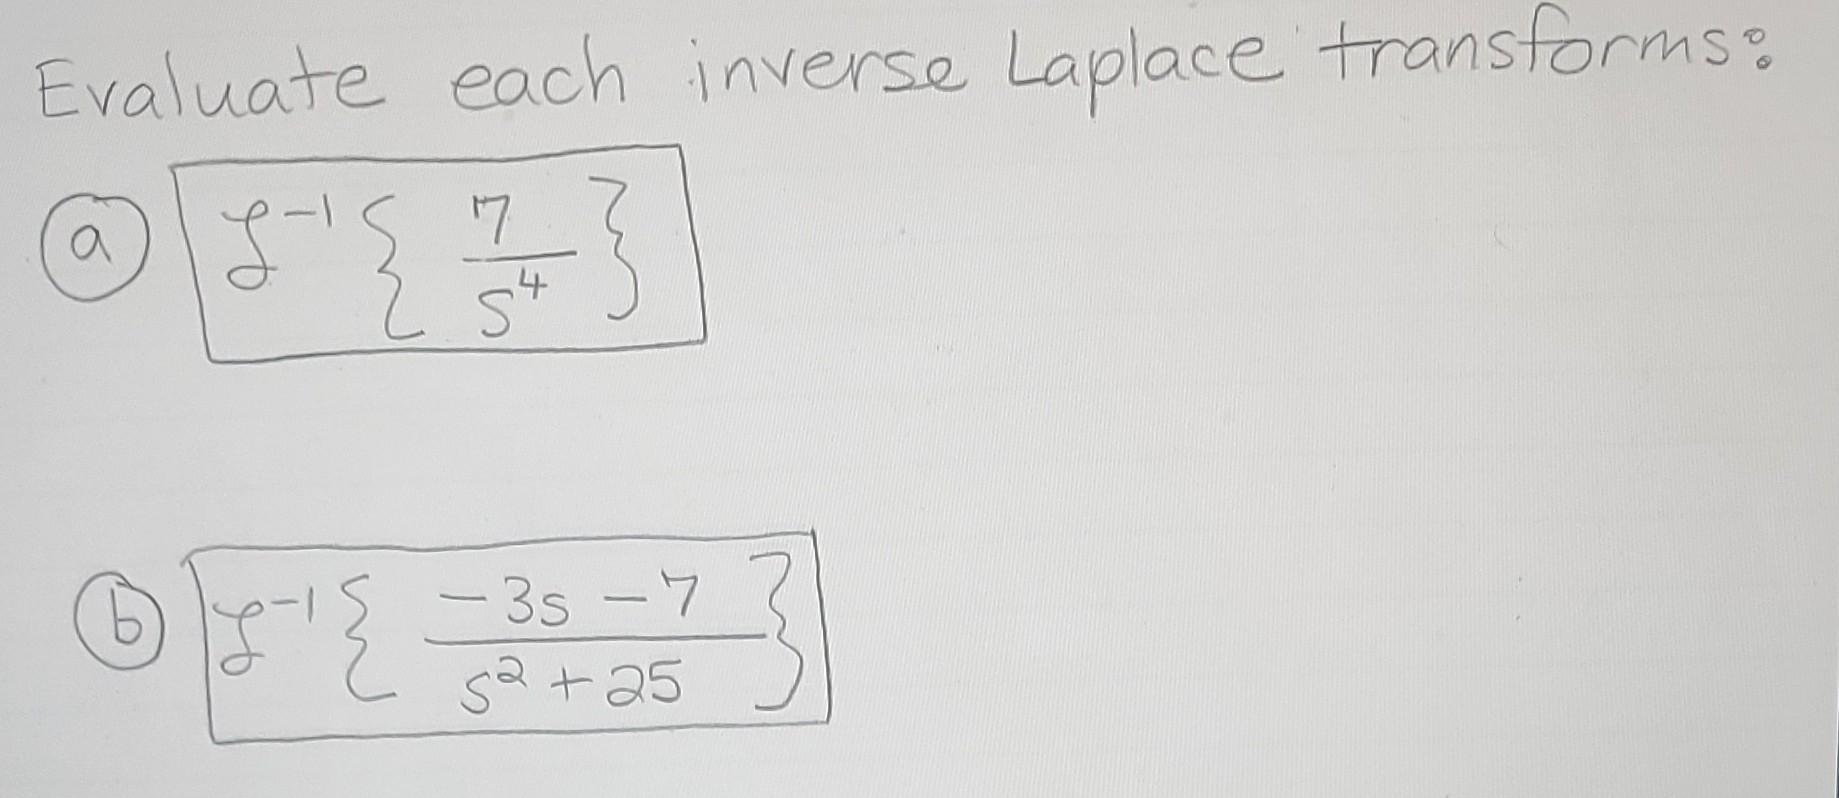 Evaluate each inverse Laplace transforms:
(a) ℒ⁻¹{ 7/s⁴ }
(b) ℒ⁻¹{ (-3s - 7)/(s² + 25) }